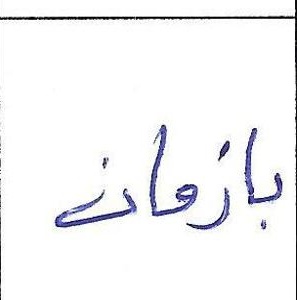 بازمانے